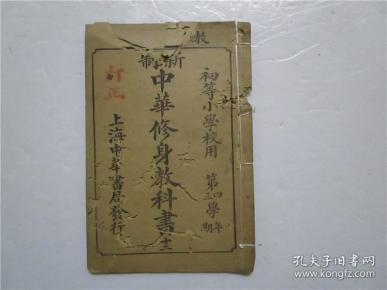 初等小學校用
第四學年
第三學期
新制
中華修身教科書
十二
訂正
上海中華書局發行
孔夫子旧书网